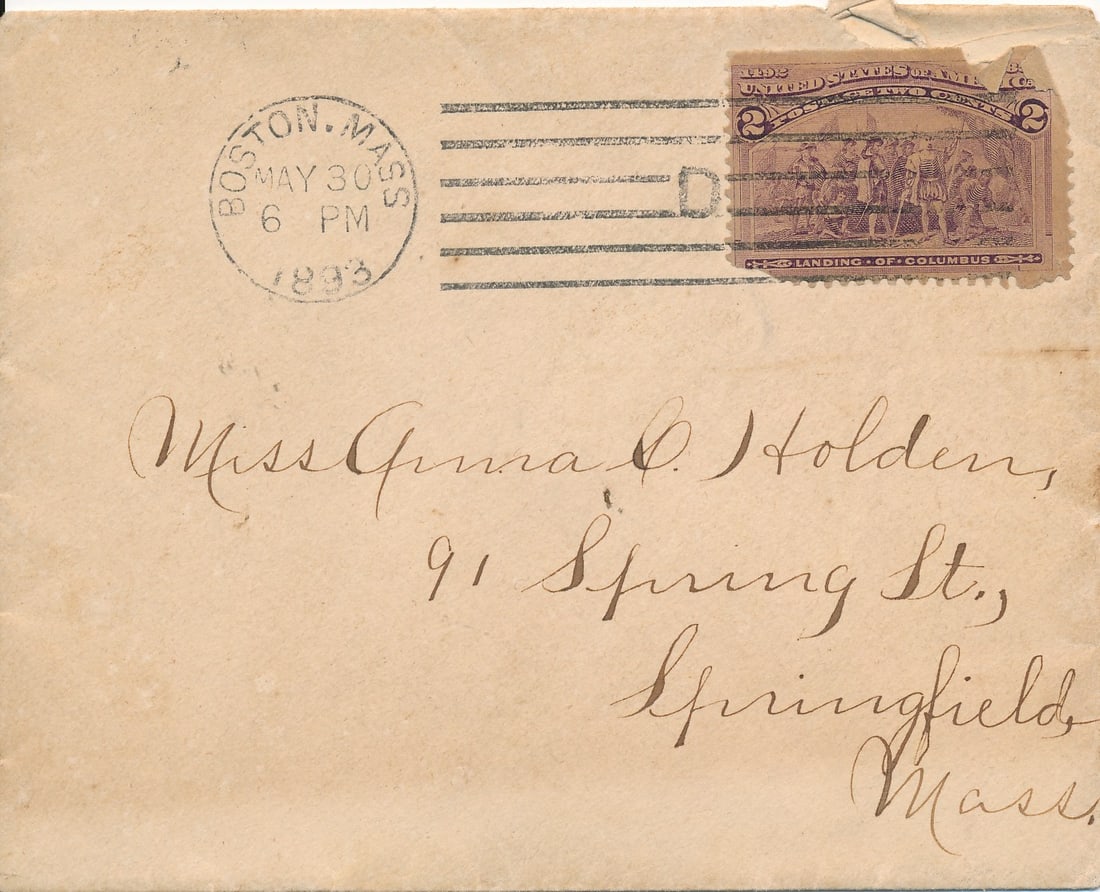 BOSTON. MASS
MAY 30
6 PM
1893
D
1492
UNITED STATES OF AME
POSTAGE TWO CENTS
2 2
LANDING · OF · COLUMBUS
Miss Anna C. Holden,
91 Spring St.,
Springfield,
Mass.